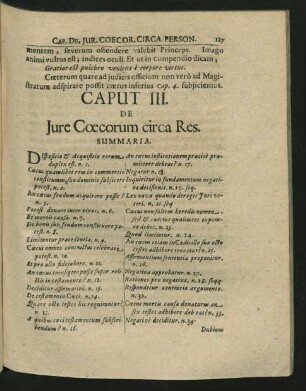 CAP. DE. JUR. COECOR. CIRCA PERSON. 127
mentem, severum ostendere valebit Princeps. Imago
animi vultus est; indices oculi. Et ut in compendio dicam;
Gratior est pulchro veniens è corpore virtus.
Cœterum quare ad judicis officium non verò ad Magi-
stratum adspirare possit cœcus inferius cap. 4. subjiciemus.
CAPUT III.
DE
Jure Cœcorum circa Res.
SUMMARIA.
Dispositio & Acquisitio rerum
duplex est. n. 1.
Cœcus quamlibet rem in commercio
constitutam, sua dominio subjicere
potest. n. 2.
An cœcus feudum acquirere possit?
n. 3.
Potest donari inter vivos. n. 6.
Et mortis causa. n. 7.
De bonis feudum
potest.
Limitantur præcedentia. n.
Cœcus omnes contractus celebrare
potest. n.
Et pro alio fidejubere. n. 11.
An cœcus
lis in testamento? n. 12.
Deciditur affirmative. n. 13.
De testamento Cœci. n. 14.
Quare alio testes hic requirantur?
n. 15.
A quibus cœci testamentum subscri-
bendum? n. 16.
An cœcus institutionem præcisè præ-
mittere debeat? n. 17.
Negatur. n. 18.
Inquiritur in fundamentum negati-
væ decisionis. n. 19. seq.
Lex nova quando deroget Juri ve-
teri. n. 21. seq.
Cœcus non solum heredis nomen,
sed & ejus qualitates expone-
re debet.
Quod limitatur. n. 24.
An cœcus etiam in Codicillo suo octo
testes adhibere teneatur? n. 25.
Affirmantium sententia proponitur.
n. 26.
Negativa approbatur. n. 27.
Rationes pro negativa. n. 28. seq.
Respondetur contrariis argumentis.
n. 32.
Cœcus mortis causa donaturus an
testes adhibere debeat? n. 33.
Negative deciditur. n. 35.
Dubium